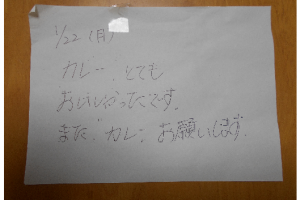 1/22 (月)
カレー、とても
おいしかったです。
また、カレー、お願いします。